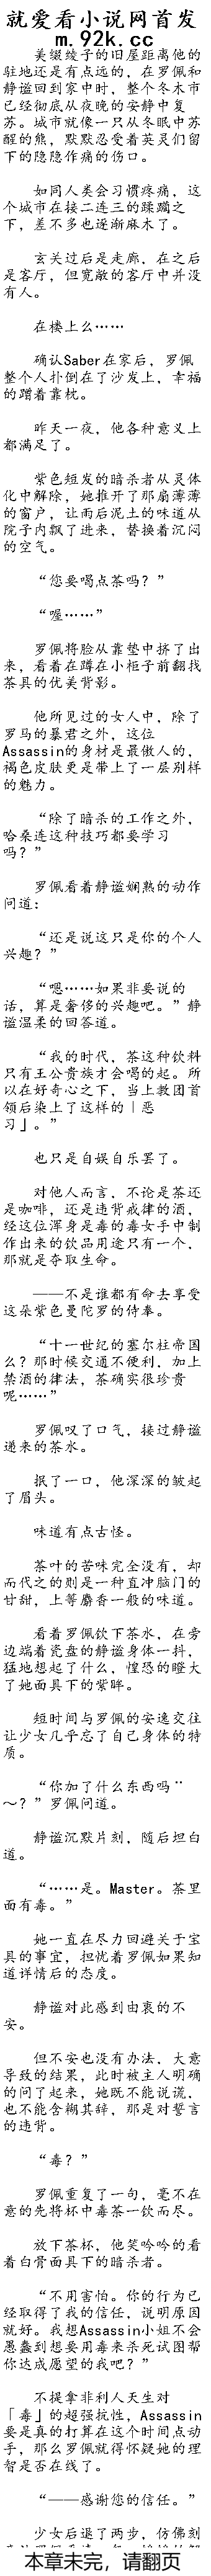 就爱看小说网首发
m.92k.cc
美缀绫子的旧屋距离他的
驻地还是有点远的，在罗佩和
静谧回到家中时，整个冬木市
已经彻底从夜晚的安静中复
苏。城市就像一只从冬眠中苏
醒的熊，默默忍受着英灵们留
下的隐隐作痛的伤口。
如同人类会习惯疼痛，这
个城市在接二连三的蹂躏之
下，差不多也逐渐麻木了。
玄关过后是走廊，在之后
是客厅，但宽敞的客厅中并没
有人。
在楼上么……
确认Saber在家后，罗佩
整个人扑倒在了沙发上，幸福
的蹭着靠枕。
昨天一夜，他各种意义上
都满足了。
紫色短发的暗杀者从灵体
化中解除，她推开了那扇薄薄
的窗户，让雨后泥土的味道从
院子内飘了进来，替换着沉闷
的空气。
“您要喝点茶吗？”
“喔……”
罗佩将脸从靠垫中挤了出
来，看着在蹲在小柜子前翻找
茶具的优美背影。
他所见过的女人中，除了
罗马的暴君之外，这位
Assassin的身材是最傲人的，
褐色皮肤更是带上了一层别样
的魅力。
“除了暗杀的工作之外，
哈桑连这种技巧都要学习
吗？”
罗佩看着静谧娴熟的动作
问道：
“还是说这只是你的个人
兴趣？”
“嗯……如果非要说的
话，算是奢侈的兴趣吧。”静
谧温柔的回答道。
“我的时代，茶这种饮料
只有王公贵族才会喝的起。所
以在好奇心之下，当上教团首
领后染上了这样的「恶
习」。”
也只是自娱自乐罢了。
对他人而言，不论是茶还
是咖啡，还是违背戒律的酒，
经这位浑身是毒的毒女手中制
作出来的饮品用途只有一个，
那就是夺取生命。
——不是谁都有命去享受
这朵紫色曼陀罗的侍奉。
“十一世纪的塞尔柱帝国
么？那时候交通不便利，加上
禁酒的律法，茶确实很珍贵
呢……”
罗佩叹了口气，接过静谧
递来的茶水。
抿了一口，他深深的皱起
了眉头。
味道有点古怪。
茶叶的苦味完全没有，却
而代之的则是一种直冲脑门的
甘甜，上等麝香一般的味道。
看着罗佩饮下茶水，在旁
边端着瓷盘的静谧身体一抖，
猛地想起了什么，惶恐的瞪大
了她面具下的紫眸。
短时间与罗佩的安逸交往
让少女几乎忘了自己身体的特
质。
“你加了什么东西吗¨
～？”罗佩问道。
静谧沉默片刻，随后坦白
道。
“……是。Master。茶里
面有毒。”
她一直在尽力回避关于宝
具的事宜，担忧着罗佩如果知
道详情后的态度。
静谧对此感到由衷的不
安。
但不安也没有办法，大意
导致的结果，此时被主人明确
的问了起来，她既不能说谎，
也不能含糊其辞，那是对誓言
的违背。
“毒？”
罗佩重复了一句，毫不在
意的先将杯中毒茶一饮而尽。
放下茶杯，他笑吟吟的看
着白骨面具下的暗杀者。
“不用害怕。你的行为已
经取得了我的信任，说明原因
就好。我想Assassin小姐不会
愚蠢到想要用毒来杀死试图帮
你达成愿望的我吧？”
不提拿非利人天生对
「毒」的超强抗性，Assassin
要是真的打算在这个时间点动
手，那么罗佩就得怀疑她的理
智是否在线了。
“——感谢您的信任。”
少女后退了两步，仿佛刻
本章未完，请翻页